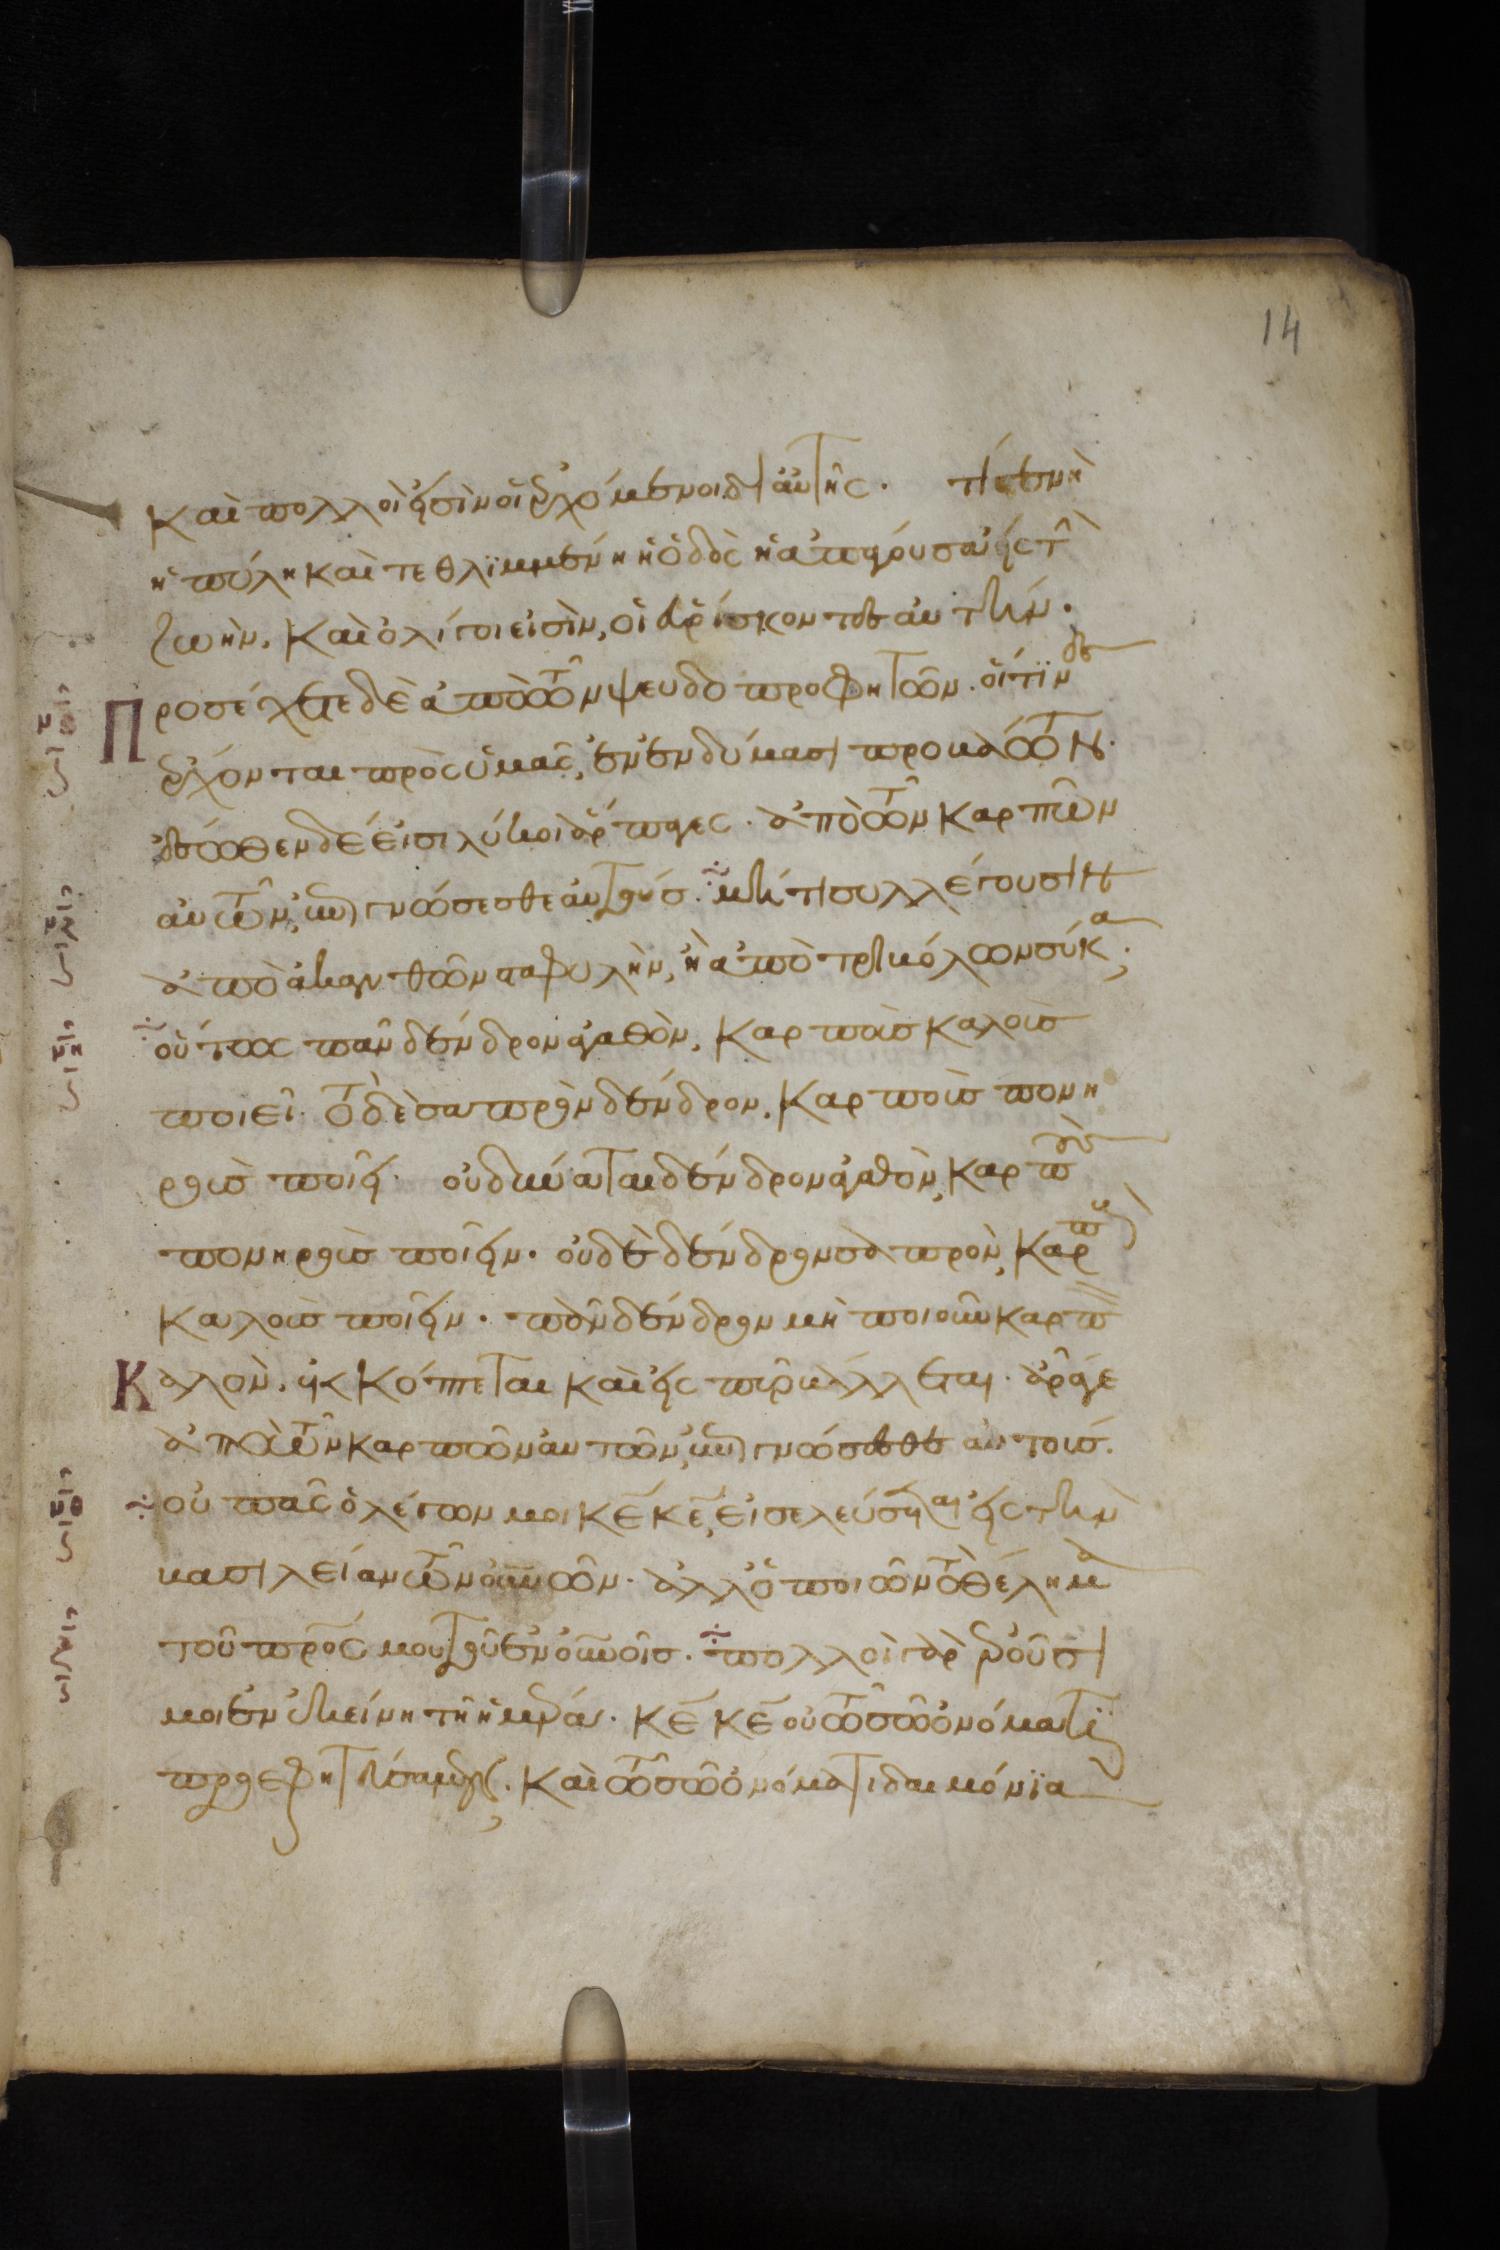 14
καὶ πολλοὶ εἰσὶν οἱ ἐρχόμενοι δι αὐτῆς. τί στενὴ
ἡ πύλη καὶ τεθλϊμμένη ἡ ὁδὸς ἡ ἀπάγουσα εἰς τὴν
ζωὴν. καὶ ὀλίγοι εἰσὶν, οἱ εὑρίσκοντες αὐτήν.
Προσέχετε δὲ ἀπὸ τῶν ψευδοπροφητῶν. οἵτϊνες
ἔρχονται πρὸς ὑμᾶς, ἐν ἐνδύμασι προβάτων.
ἔσωθεν δέ εἰσι λύκοι ἅρπαγες. ἀπὸ τῶν καρπῶν
αὐτῶν, ἐπιγνώσεσθε αὐτούς. μήτι συλλέγουσιν
ἀπὸ ἀκανθῶν σταφυλὴν, ἢ ἀπὸ τριβόλων σύκα;
οὕτως πᾶν δένδρον ἀγαθὸν, καρποὺς καλοὺς
ποιεῖ. τὸ δὲ σαπρὸν δένδρον, καρποὺς πονη
ροὺς ποιεῖ. οὐ δύναται δένδρον ἀγαθὸν, καρποὺς
πονηροὺς ποιεῖν. οὐδὲ δένδρον σαπρὸν, καρποὺς
καλοὺς ποιεῖν. πᾶν δένδρον μὴ ποιοῦν καρπὸν
Καλὸν, ἐκκόπτεται καὶ εἰς πῦρ βάλλεται. ἄρα γε
ἀπὸ τῶν καρπῶν αὐτῶν, ἐπιγνώσεσθε αὐτούς.
οὐ πᾶς ὁ λέγων μοι κε κε, εἰσελεύσεται εἰς τὴν
βασιλείαν τῶν οὐνῶν. ἀλλ ὁ ποιῶν τὸ θέλημα
τοῦ πρς μου τοῦ ἐν οὐνοῖς. πολλοὶ γὰρ ἐροῦσι
μοι ἐν ἐκείνη τῆ ἡμέρα. κε κε οὐ τῶ σῶ ὀνόματϊ
προεφητεύσαμεν; καὶ τῶ σῶ ὀνόματι δαιμόνϊα